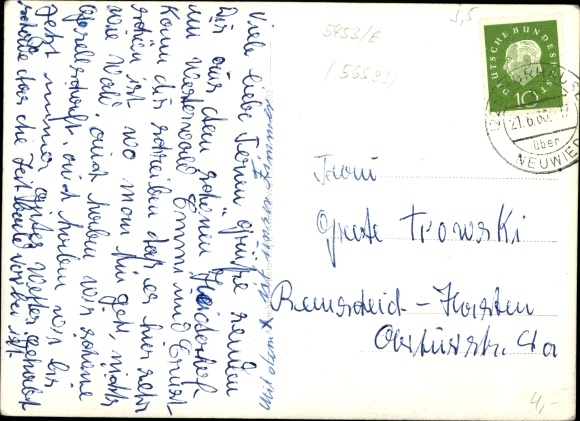 Viele liebe Ferien grüße senden
Dir aus dem schönen Heisterhof
im Westerwald Emmi und Ernst
Kann dir schreiben das es hier sehr
schön ist wo man hin geht, nichts
wie Wald. auch haben wir schöne
Gesellschaft. auch haben wir bis
jetzt immer gutes Wetter gehabt
schade das die Zeit bald vorbei ist.
5453/E
(56593)
5,5
DEUTSCHE BUNDESPOST
10
21.6.60
über
NEUWIED
Frau
Grete Trowski
Remscheid-Hasten
4,-